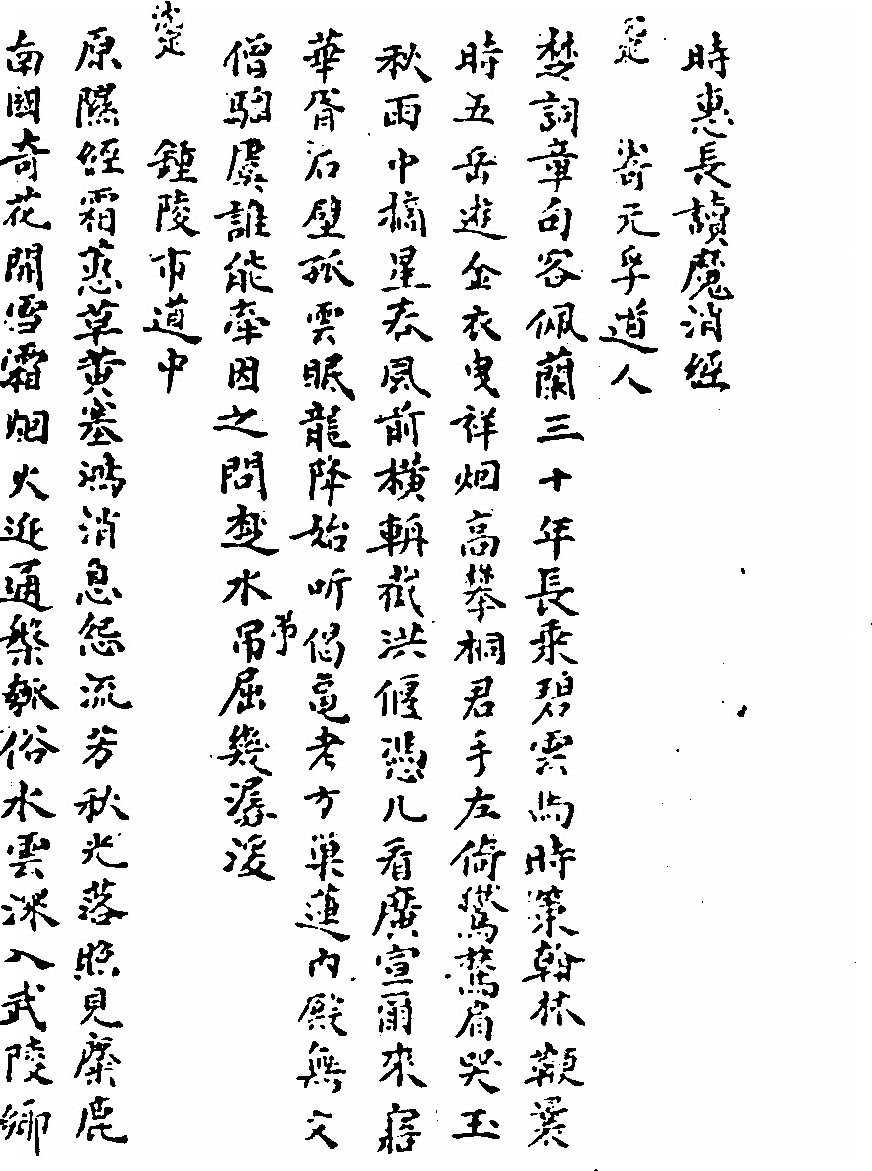 時惠長讀魔消經
寄元孚道人
楚詞章句客佩蘭三十年長乘碧雲馬時策翰林鞭曩
時五岳遊金衣曳祥烟高攀桐君手左倚鸑鷟肩哭玉
秋雨中摘星春風前橫輈截洪偃憑几看廣宣爾來寤
華胥石壁孤雲眠龍降始听偈龜老方巢蓮內殿無文
僧騶虞誰能牽因之問楚水吊屈幾潺湲
弔
鍾陵市道中
原隰經霜蕙草黃塞鴻消息怨流芳秋光落照見麋鹿
南國奇花開雪霜烟火近通槃瓠俗水雲深入武陵鄉